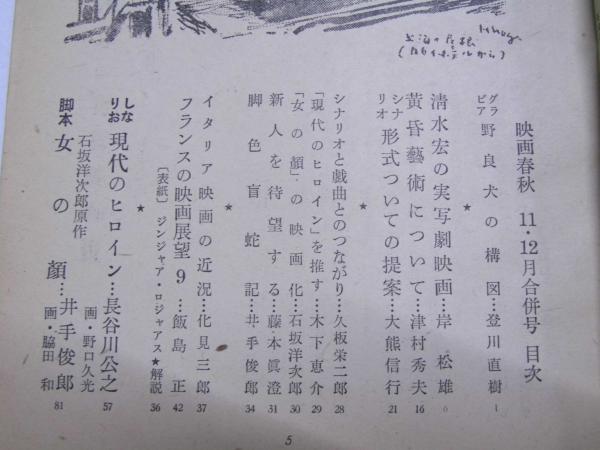 上海の屋根
映画春秋 11・12月合併号 目次
グラビア 野良犬の構図…登川直樹 1
清水宏の実写劇映画…岸松雄 6
黄昏藝術について…津村秀夫 16
シナリオ 形式ついての提案…大熊信行 21
★
シナリオと戯曲とのつながり…久板栄二郎 28
「現代のヒロイン」を推す…木下恵介 29
「女の顔」の映画化…石坂洋次郎 30
新人を待望する…藤本眞澄 31
脚色盲蛇記…井手俊郎 34
★
イタリア映画の近況…化見三郎 37
フランスの映画展望 9…飯島正 42
〔表紙〕ジンジャア・ロジャアス★解説 36
★
しなりお 現代のヒロイン…長谷川公之 57
画・野口久光
石坂洋次郎原作
脚本 女の顔…井手俊郎 81
画・脇田和
5